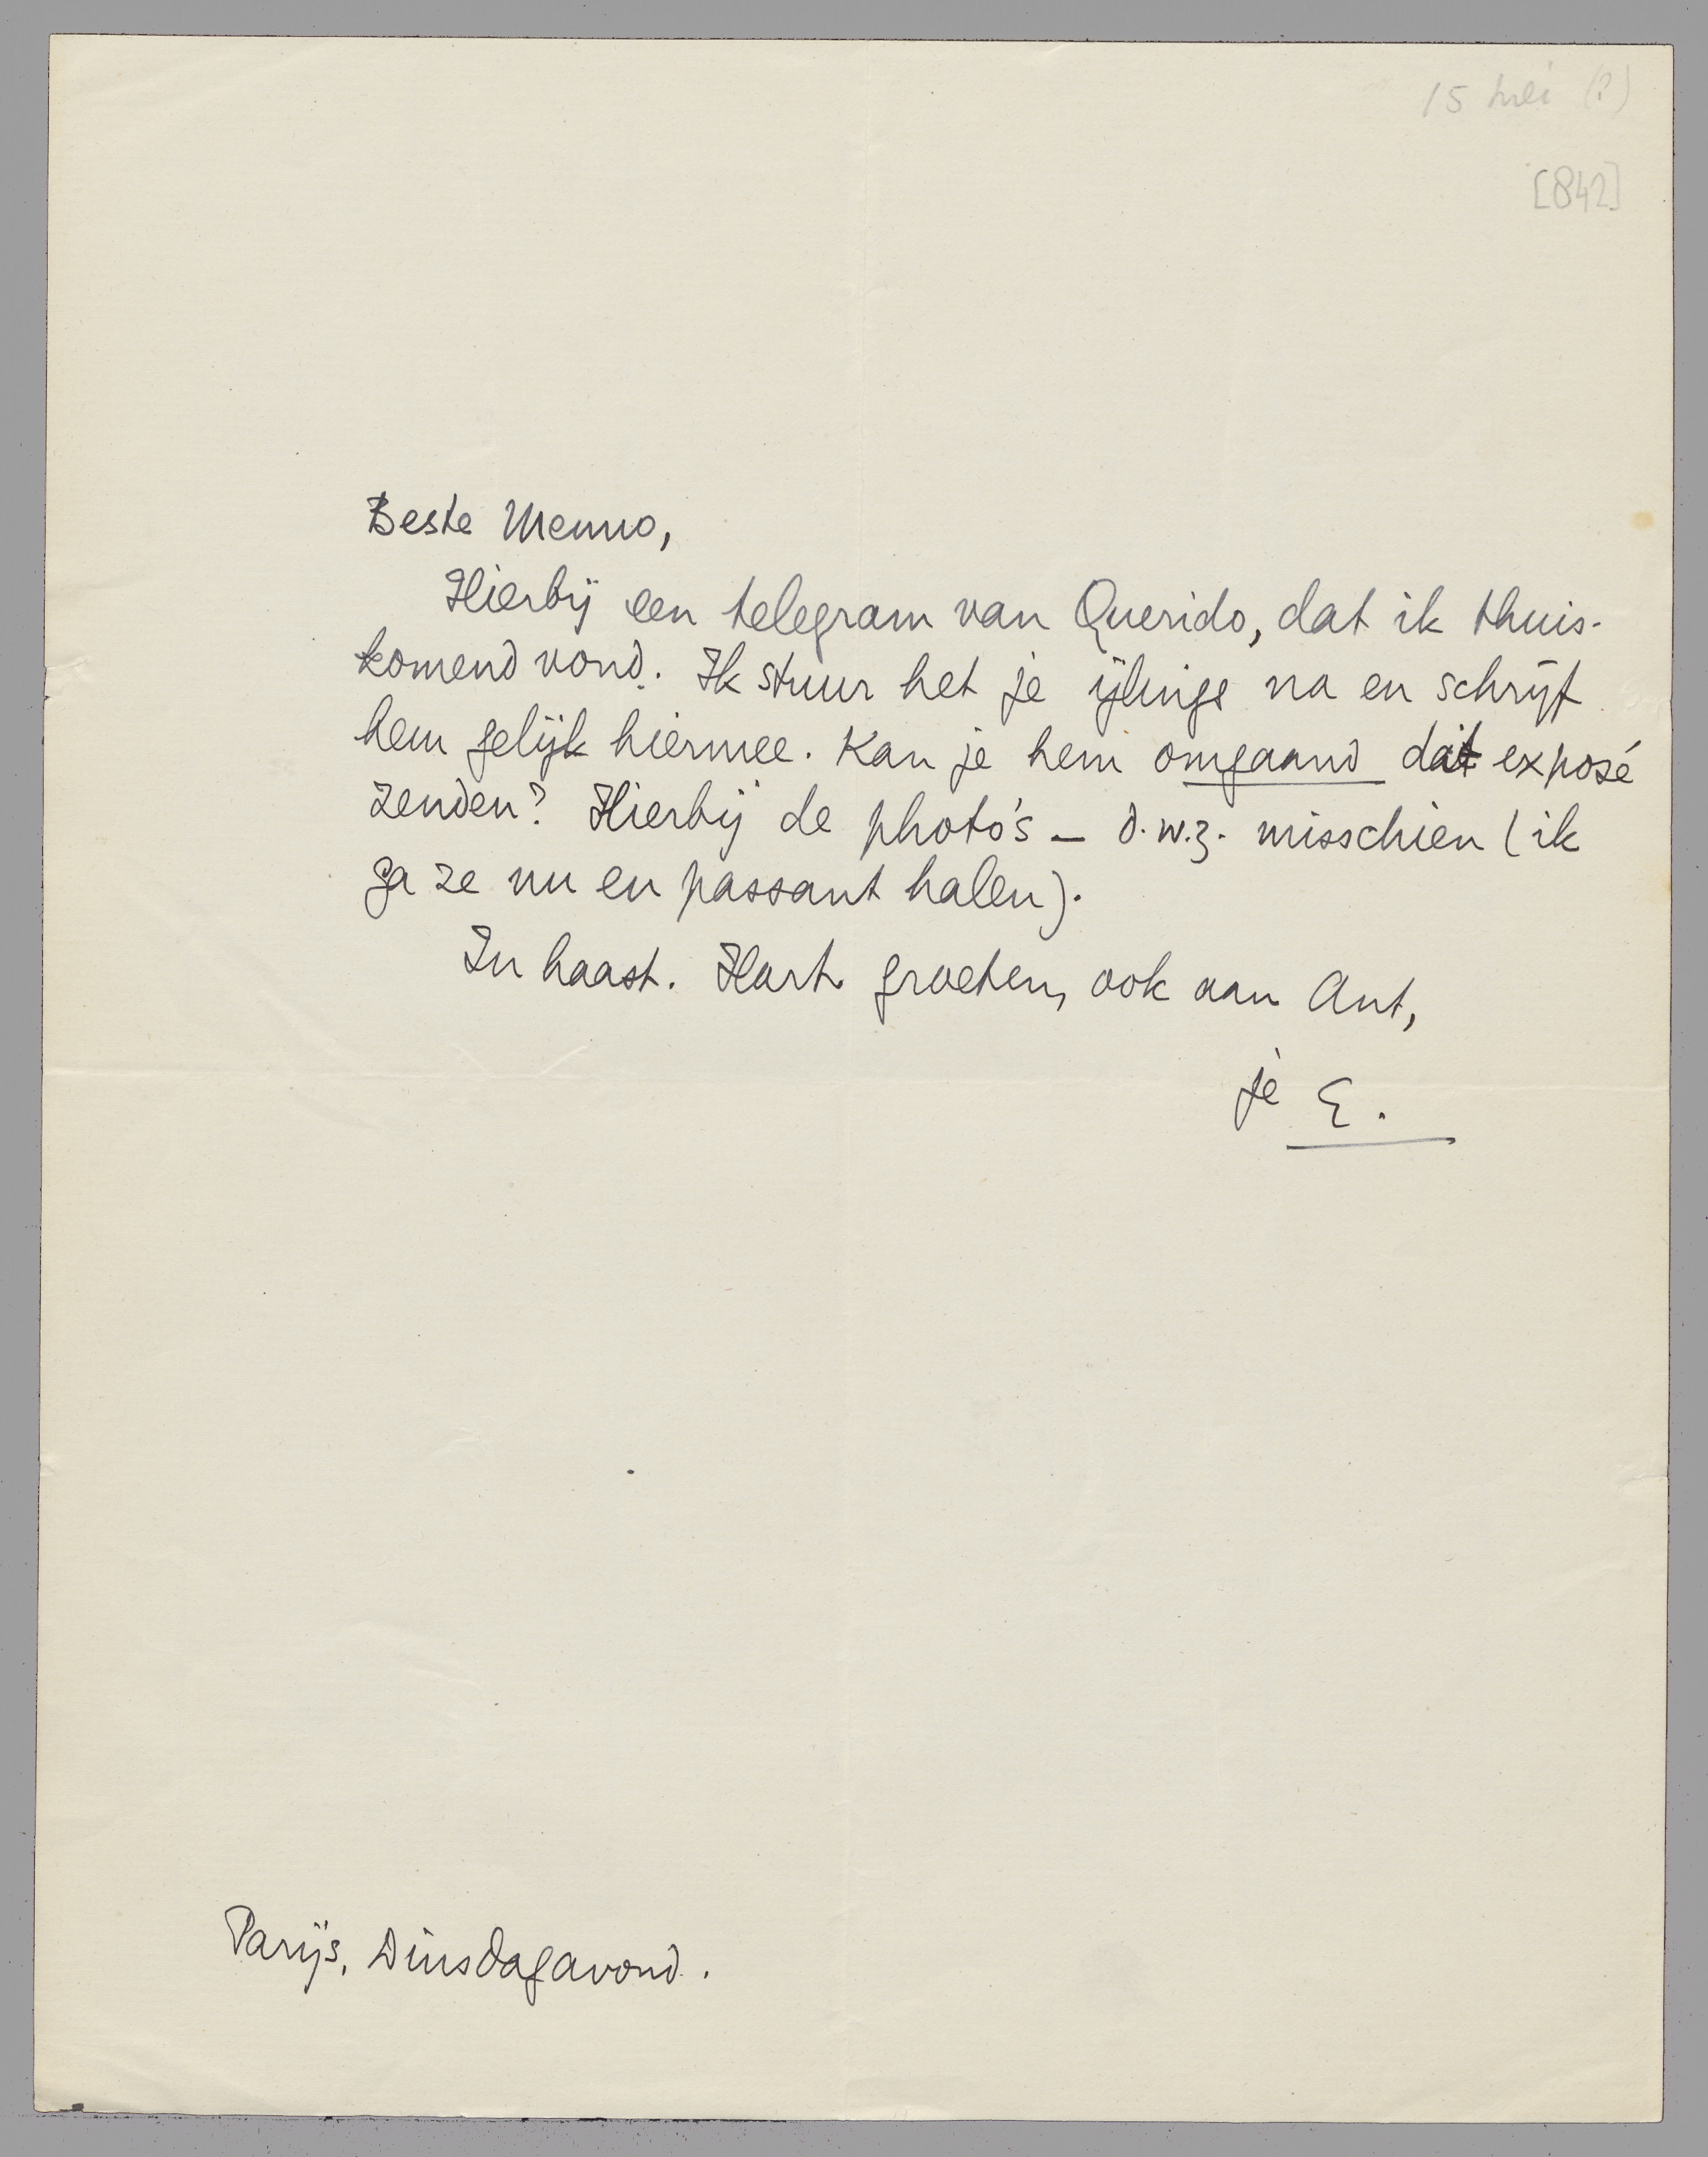 15 mei (?)
[842]
Beste Menno,
Hierbij een telegram van Querido, dat ik thuis-
komend vond. Ik stuur het je ijlings na en schrijf
hem gelijk hiermee. Kan je hem omgaand dat exposé
zenden? Hierbij de photo's – d.w.z. misschien (ik
ga ze nu en passant halen).
In haast. Hart. groeten, ook aan Ant,
je E.
Parijs, Dinsdagavond.